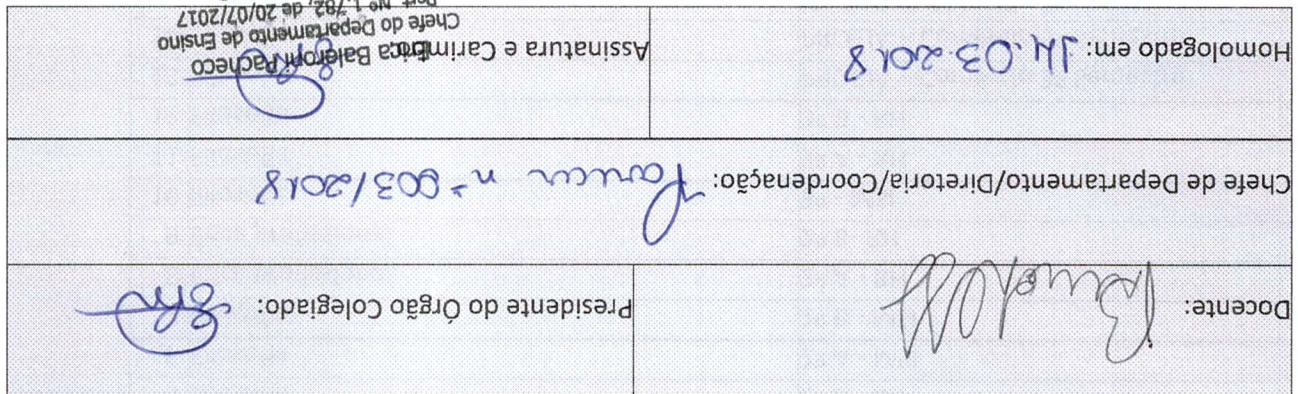 Docente:
Presidente do Órgão Colegiado:
Chefe de Departamento/Diretoria/Coordenação: Parecer n° 003/2018
Homologado em: 14.03.2018
Assinatura e Carimbo:
Érica Baleroni Pacheco
Chefe do Departamento de Ensino
Port. Nº 1.782, de 20/07/2017